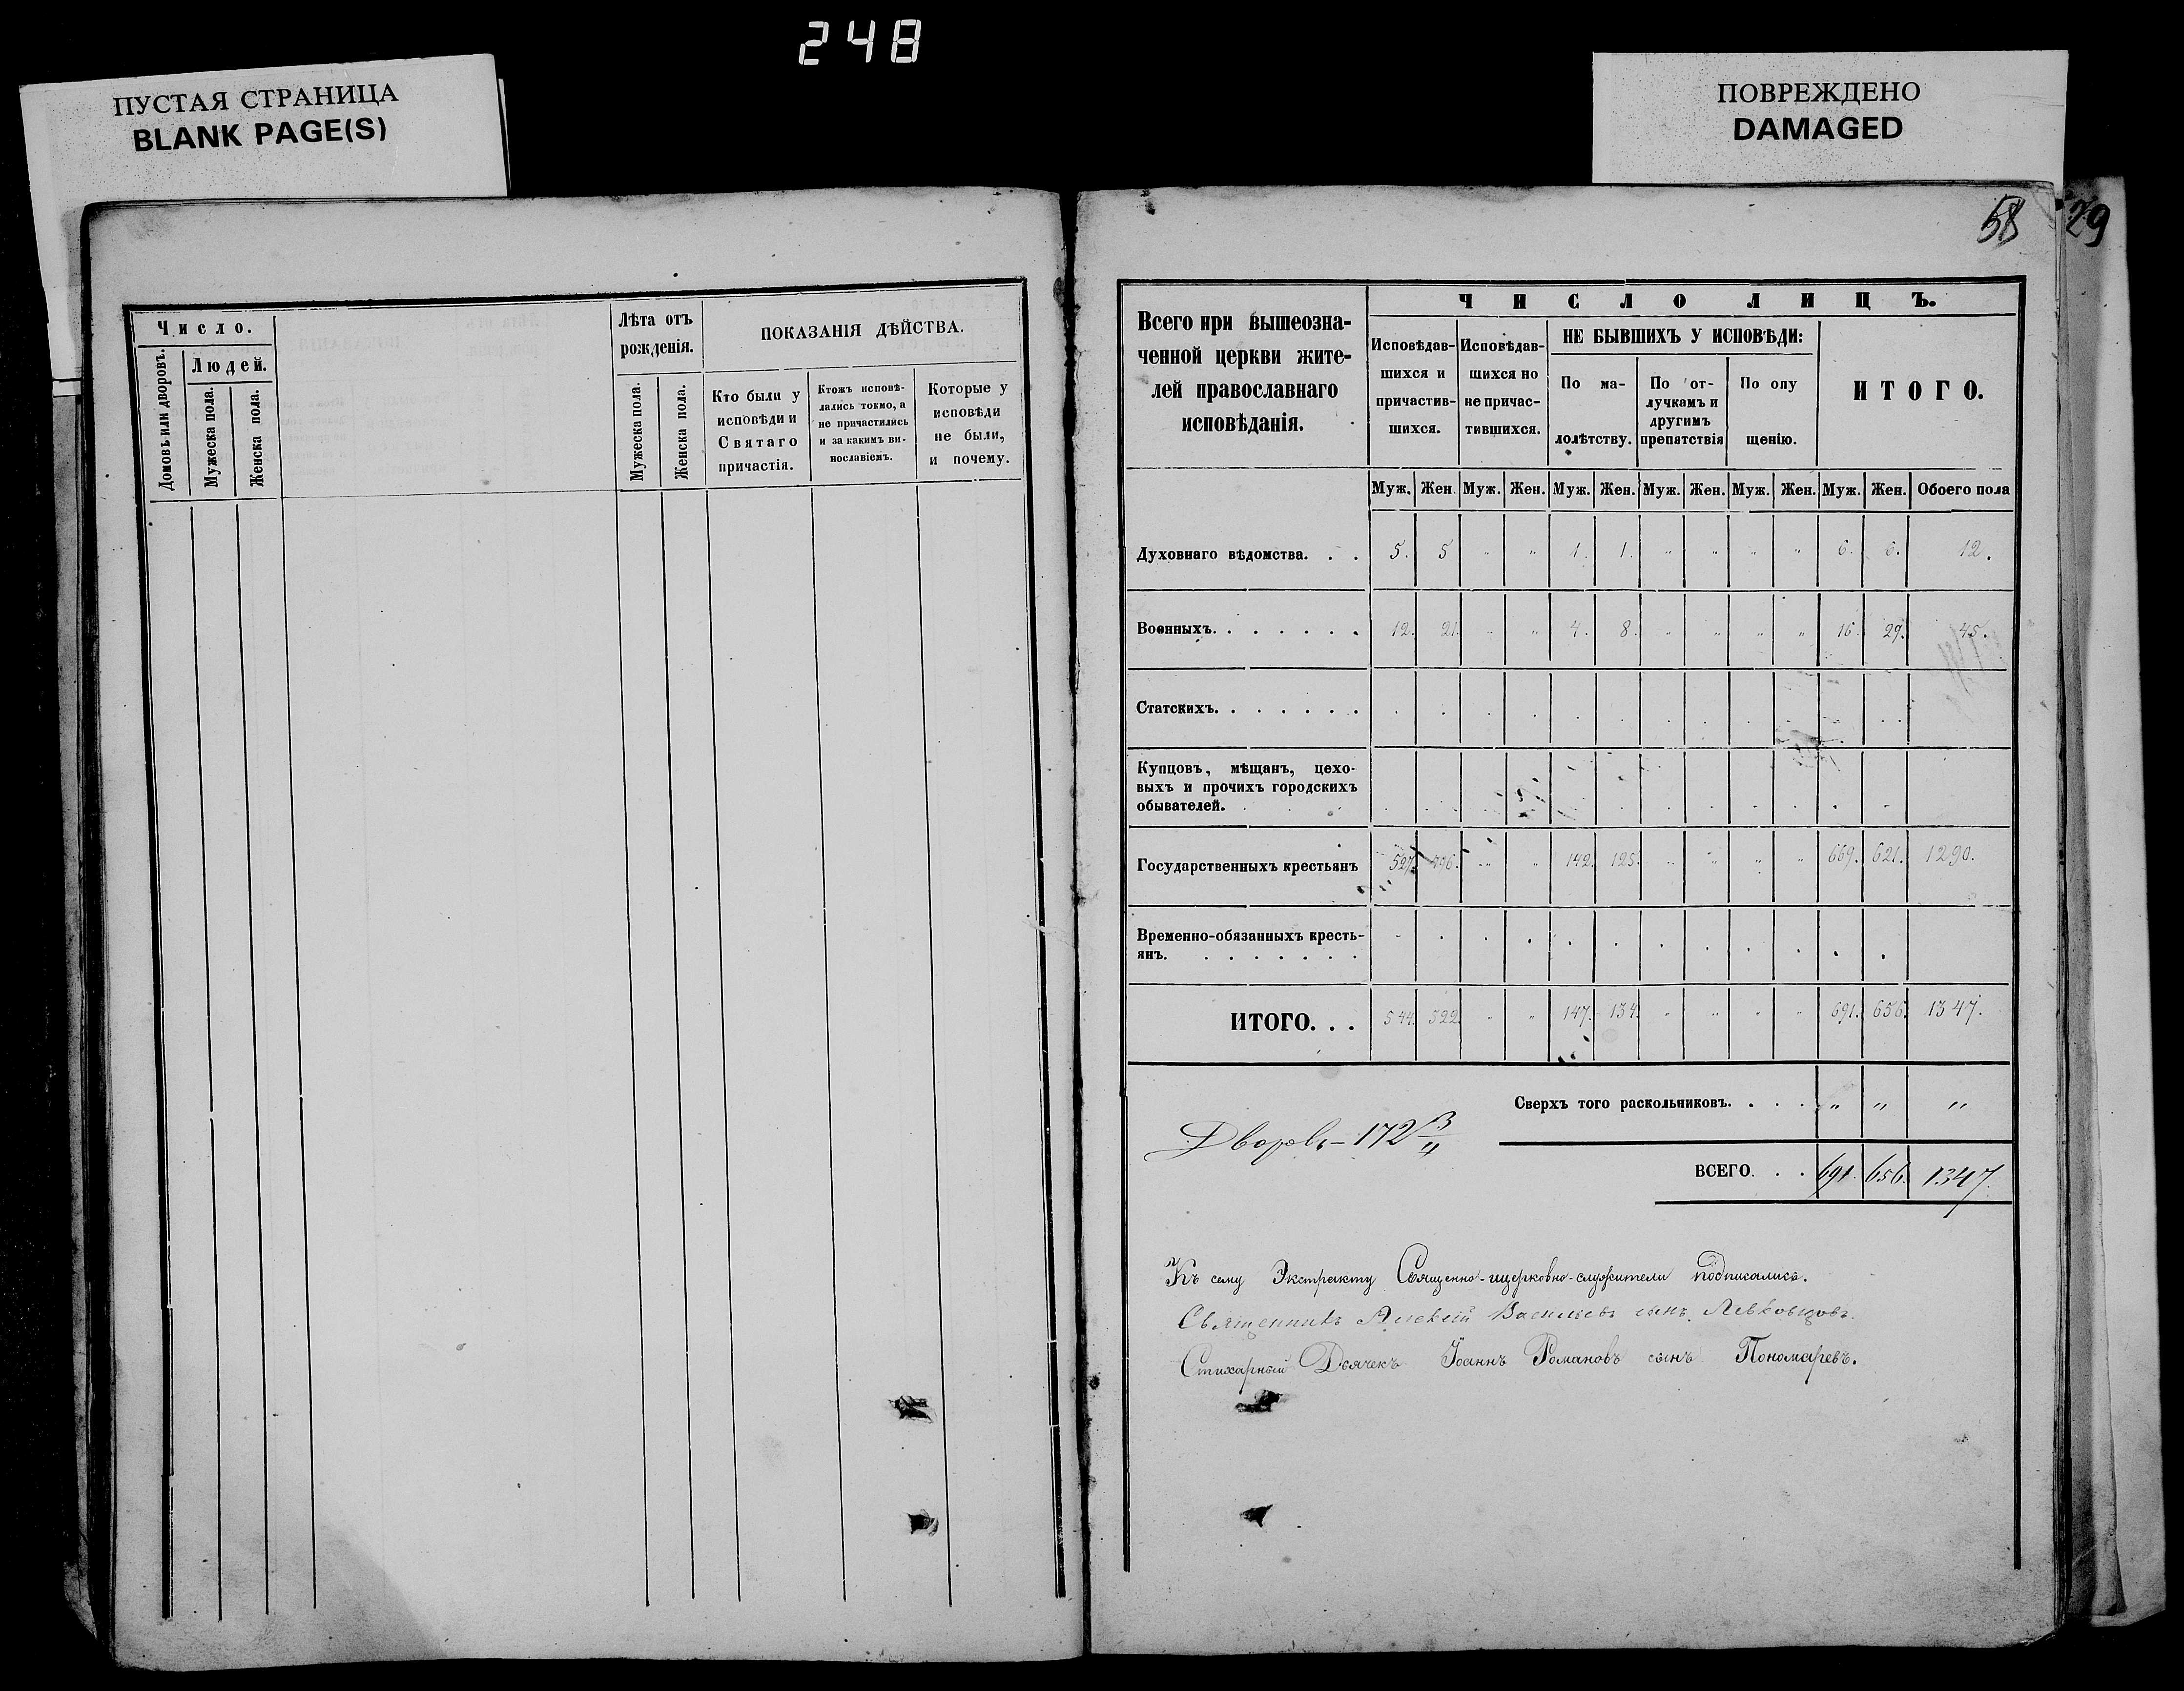 248
ПУСТАЯ СТРАНИЦА
BLANK PAGE(S)
ПОВРЕЖДЕНО
DAMAGED
58
29
Число.
Домовъ или дворовъ.
Людей.
Мужеска пола.
Женска пола.
Лѣта отъ
рожденія.
Мужеска пола.
Женска пола.
ПОКАЗАНІЯ ДѢЙСТВА.
Кто были у
исповѣди и
Святаго
причастія.
Ктожъ исповѣ-
дались токмо, а
не причастились
и за какимъ ви-
нословіемъ.
Которые у
исповѣди
не были,
и почему.
Всего при вышеозна-
ченной церкви жите-
лей православнаго
исповѣданія.
ЧИСЛО ЛИЦЪ.
Исповѣдав-
шихся и
причастив-
шихся.
Исповѣдав-
шихся но
не причас-
тившихся.
НЕ БЫВШИХЪ У ИСПОВѢДИ:
По ма-
лолѣтству.
По от-
лучкамъ и
другимъ
препятствія
По опу
щенію.
ИТОГО.
Муж. Жен. Муж. Жен. Муж. Жен. Муж. Жен. Муж. Жен. Муж. Жен. Обоего пола
Духовнаго вѣдомства. . . 5. 5 " " 1. 1. " " " " 6. 6. 12.
Военныхъ. . . . . . . 12. 21. " " 4. 8. " " " " 16. 29. 45.
Статскихъ. . . . . . .
Купцовъ, мѣщанъ, цехо-
выхъ и прочихъ городскихъ
обывателей.
Государственныхъ крестьянъ 527. 496. " " 142. 125. " " " " 669. 621. 1290.
Временно-обязанныхъ кресть-
янъ. . . . . . . .
ИТОГО. . . 544. 522. " " 147. 134. " " " " 691. 656. 1347.
Сверхъ того раскольниковъ. . . . " " "
Дворовъ – 172 3/4
ВСЕГО. . . 691. 656. 1347.
Къ сему Экстракту Священно-ицерковно-служители подписались.
Священникъ Алексій Васильевъ сынъ Левковцовъ.
Стихарный Дьячекъ Іоаннъ Романовъ сынъ Пономаревъ.